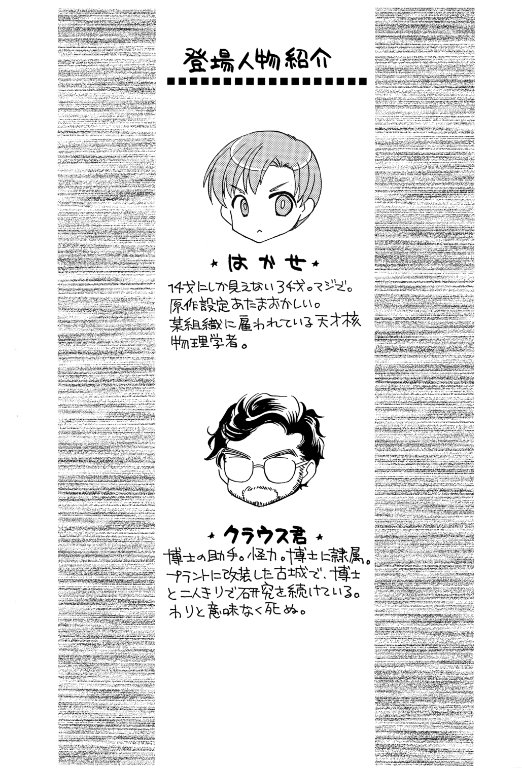 登場人物紹介
★はかせ★
14才にしか見えない34才。マジで。
原作設定あたまおかしい。
某組織に雇われている天才核
物理学者。
★クラウス君★
博士の助手。怪力。博士に隷属。
プラントに改装した古城で、博士
と二人きりで研究を続けている。
わりと意味なく死ぬ。